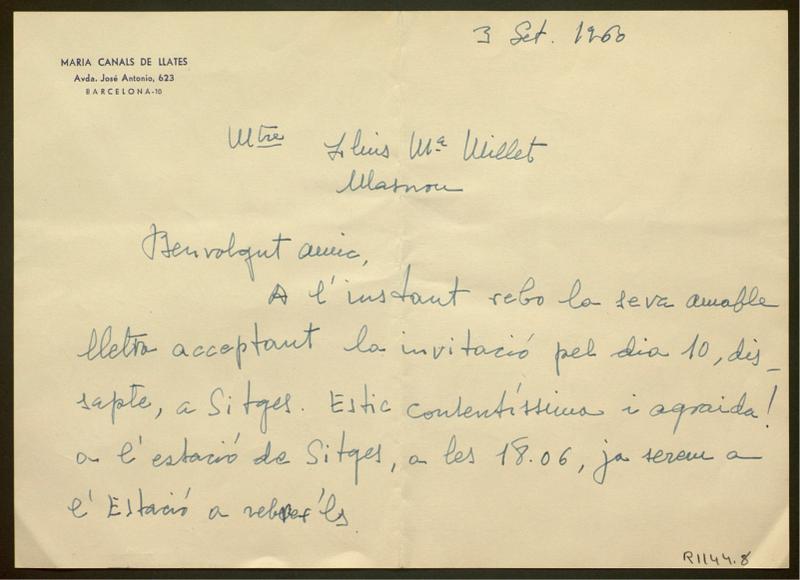 MARIA CANALS DE LLATES
Avda. José Antonio, 623
BARCELONA-10
3 Set. 1960
Mtre Lluis Mª Millet
Masnou
Benvolgut amic,
A l'instant rebo la seva amable
lletra acceptant la invitació pel dia 10, dis-
sapte, a Sitges. Estic contentíssima i agraida!
a l'estació de Sitges, a les 18.06, ja serem a
l'Estació a rebre'ls
R1144.8